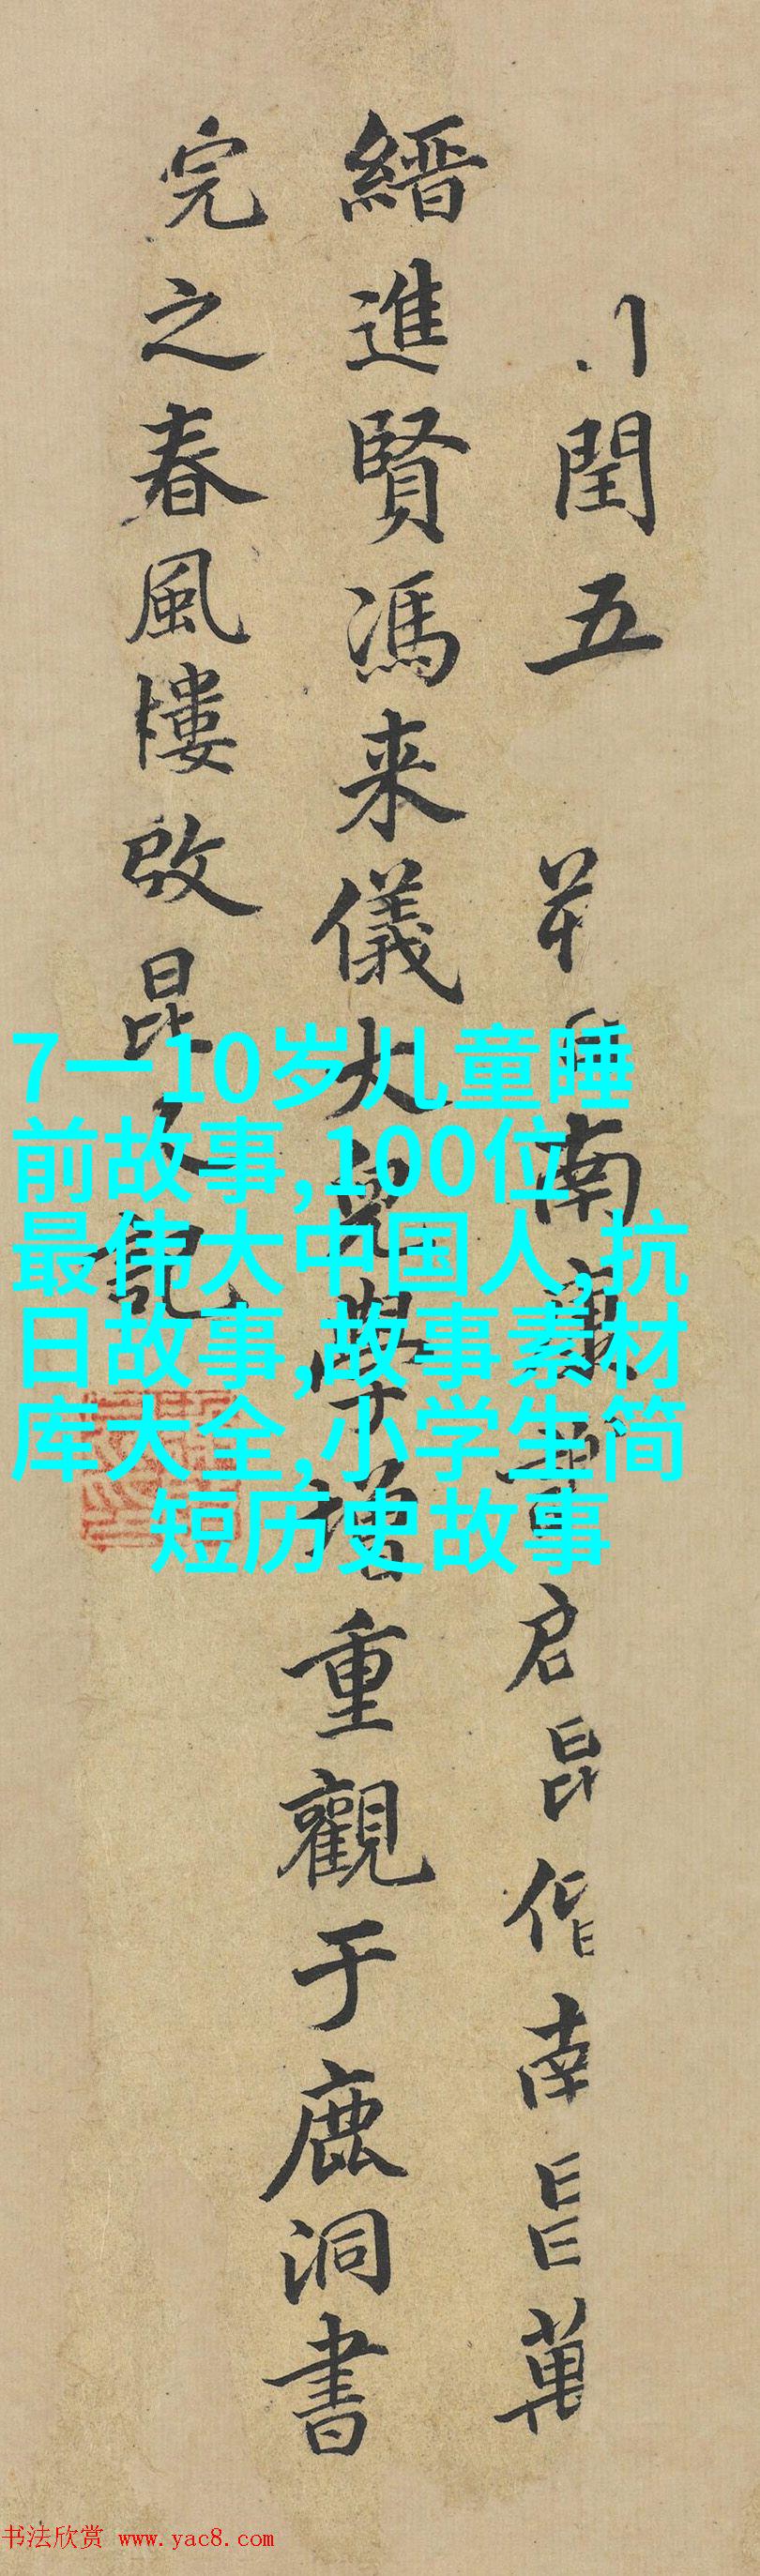 閏五
南
启昆偕南昌萬
縉進賢馮来儀大
學
增重觀于鹿洞書
完之春風樓啟昆
記
7一10岁儿童睡
前故事,100位
最伟大中国人,抗
日故事,故事素材
库大全,小学生简
短历史故事
书法欣赏 www.yac8.com